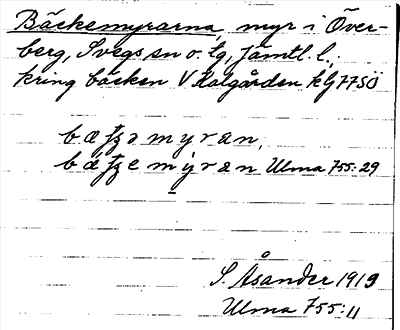 Bäckemyrarna, myr i Över-
berg, Svegs sn o. tg, Jämtl. l.,
kring bäcken V Kolgården kg 77SÖ
myran,
myran Ulma 755:29
S. Åsander 1919
Ulma 755:11